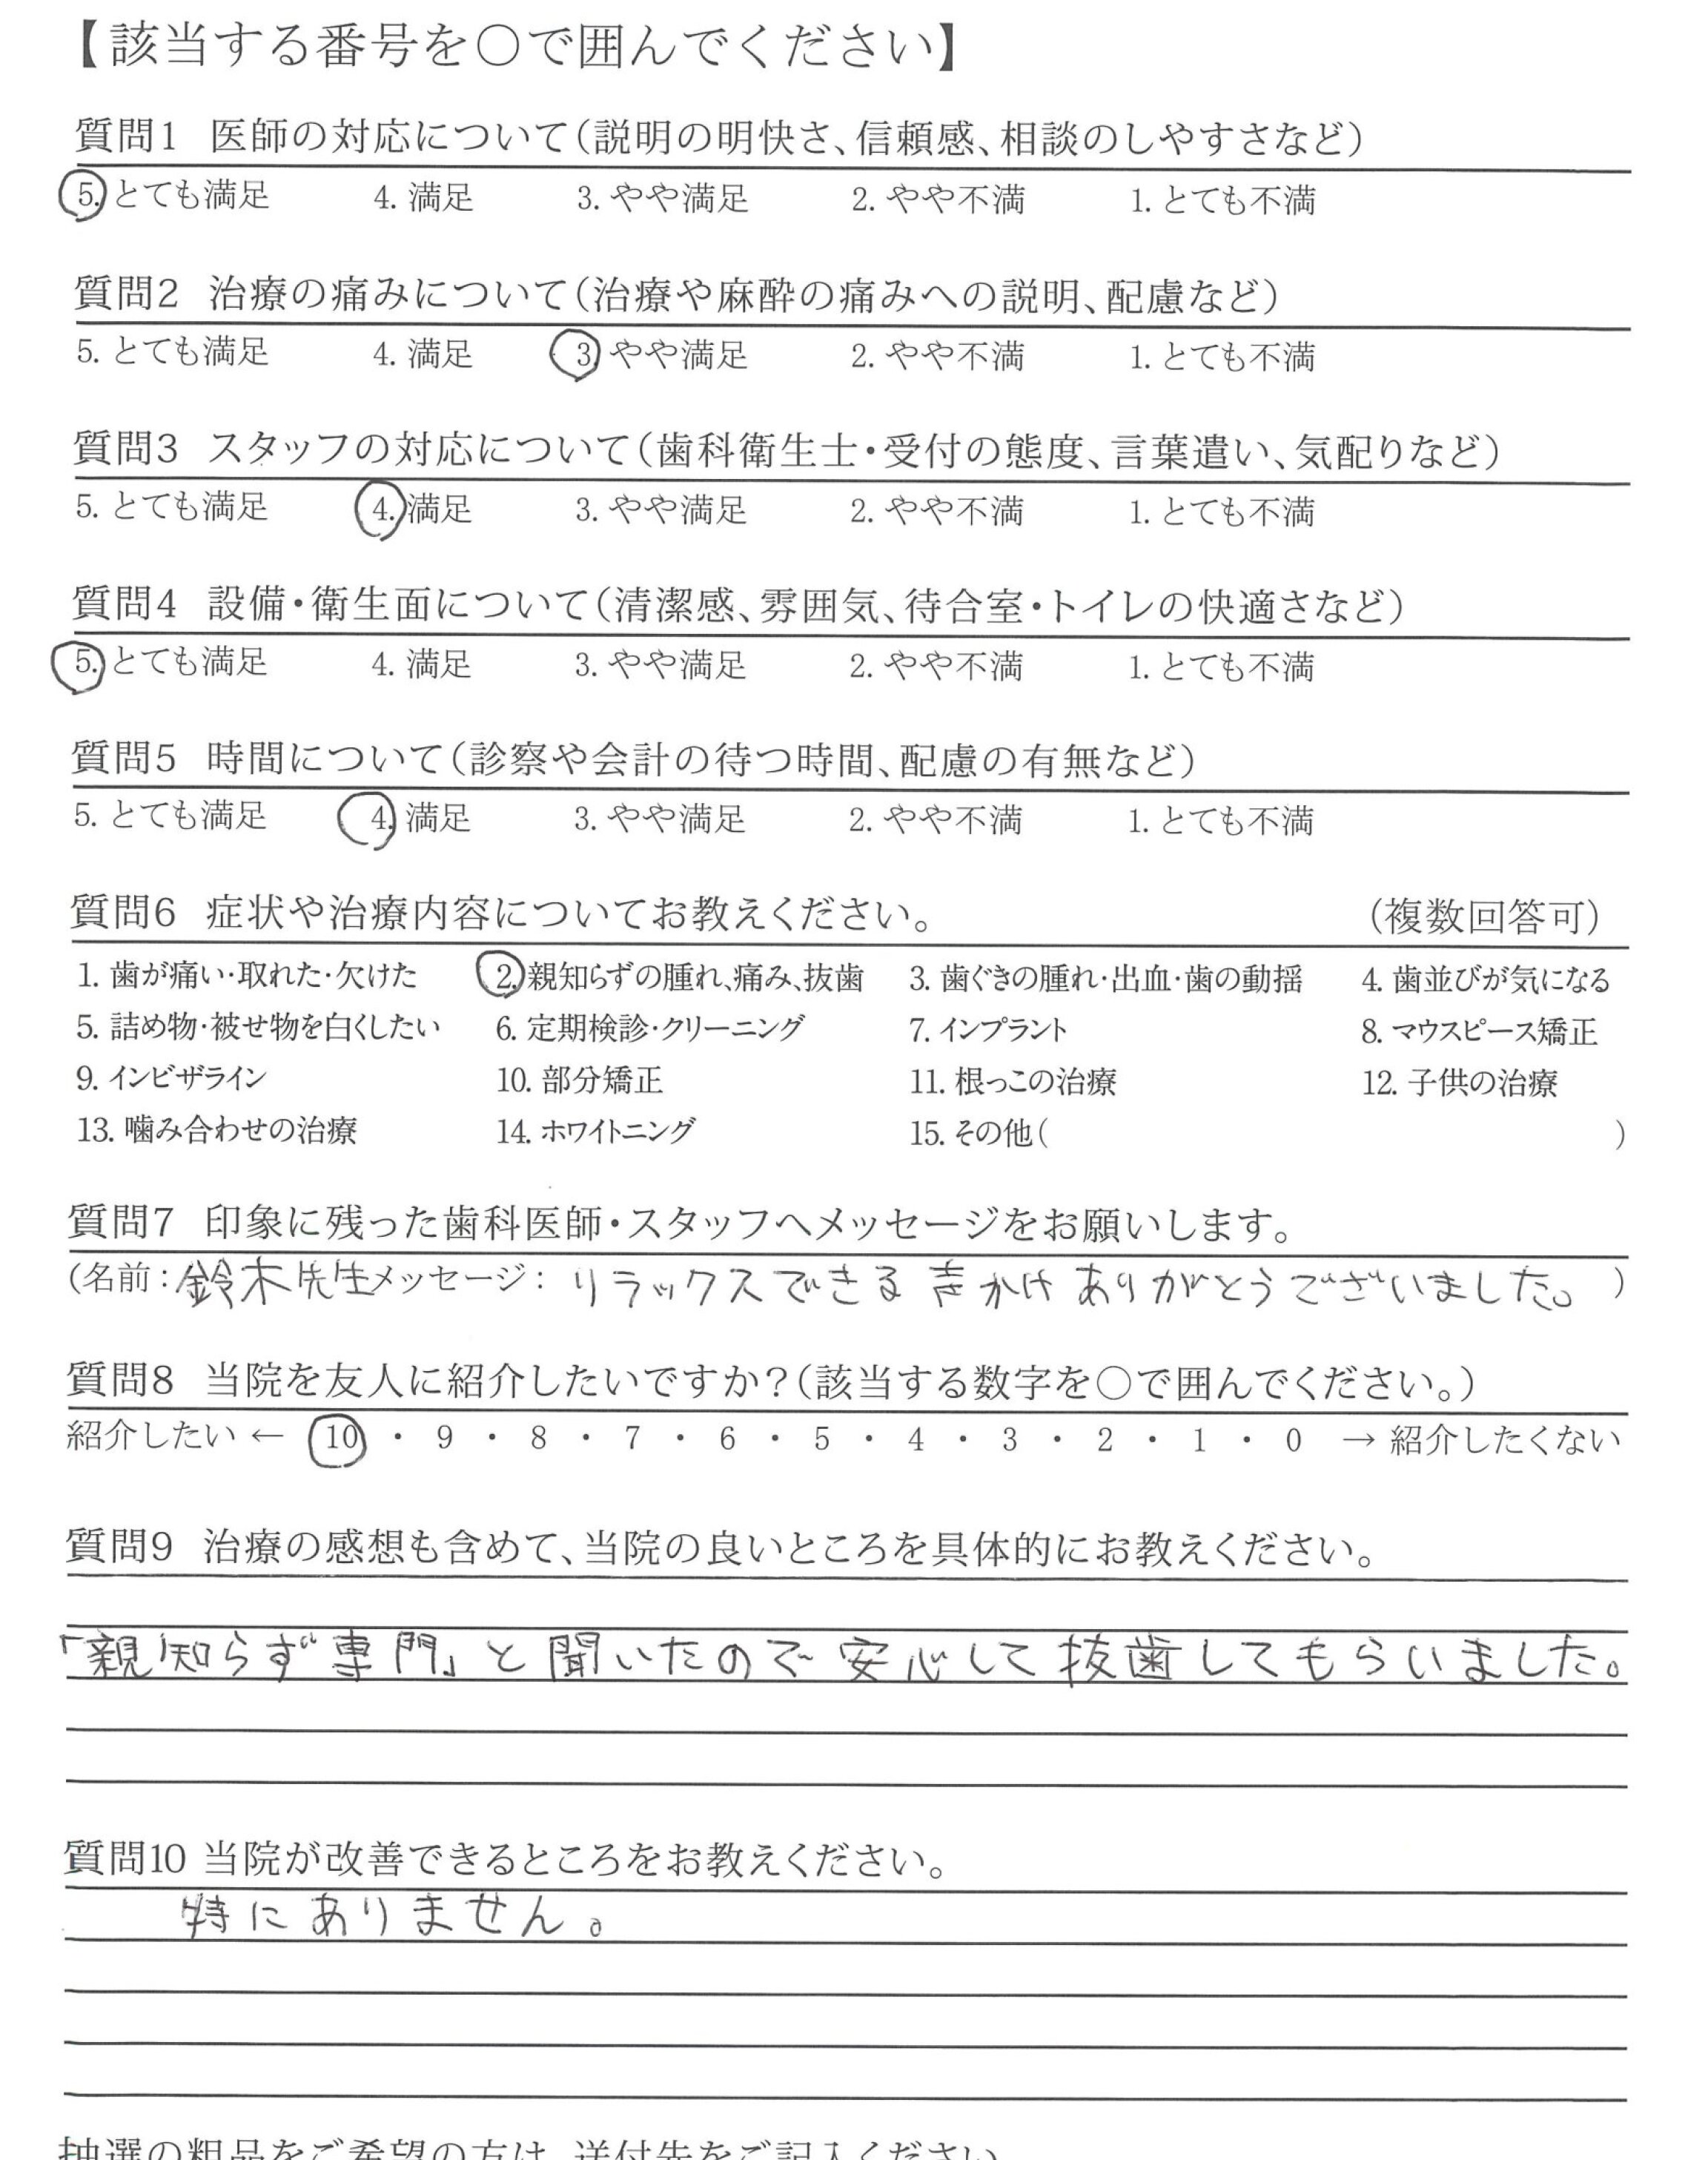 【該当する番号を○で囲んでください】
質問1 医師の対応について(説明の明快さ、信頼感、相談のしやすさなど)
5. とても満足 4. 満足 3. やや満足 2. やや不満 1. とても不満
質問2 治療の痛みについて(治療や麻酔の痛みへの説明、配慮など)
5. とても満足 4. 満足 3. やや満足 2. やや不満 1. とても不満
質問3 スタッフの対応について(歯科衛生士・受付の態度、言葉遣い、気配りなど)
5. とても満足 4. 満足 3. やや満足 2. やや不満 1. とても不満
質問4 設備・衛生面について(清潔感、雰囲気、待合室・トイレの快適さなど)
5. とても満足 4. 満足 3. やや満足 2. やや不満 1. とても不満
質問5 時間について(診察や会計の待つ時間、配慮の有無など)
5. とても満足 4. 満足 3. やや満足 2. やや不満 1. とても不満
質問6 症状や治療内容についてお教えください。 (複数回答可)
1. 歯が痛い・取れた・欠けた 2. 親知らずの腫れ、痛み、抜歯 3. 歯ぐきの腫れ・出血・歯の動揺 4. 歯並びが気になる
5. 詰め物・被せ物を白くしたい 6. 定期検診・クリーニング 7. インプラント 8. マウスピース矯正
9. インビザライン 10. 部分矯正 11. 根っこの治療 12. 子供の治療
13. 噛み合わせの治療 14. ホワイトニング 15. その他( )
質問7 印象に残った歯科医師・スタッフへメッセージをお願いします。
(名前：鈴木先生メッセージ：リラックスできる声かけありがとうございました。)
質問8 当院を友人に紹介したいですか？(該当する数字を○で囲んでください。)
紹介したい ← 10 ・ 9 ・ 8 ・ 7 ・ 6 ・ 5 ・ 4 ・ 3 ・ 2 ・ 1 ・ 0 → 紹介したくない
質問9 治療の感想も含めて、当院の良いところを具体的にお教えください。
「親知らず専門」と聞いたので安心して抜歯してもらいました。
質問10 当院が改善できるところをお教えください。
特にありません。
抽選の粗品をご希望の方は、送付先をご記入ください